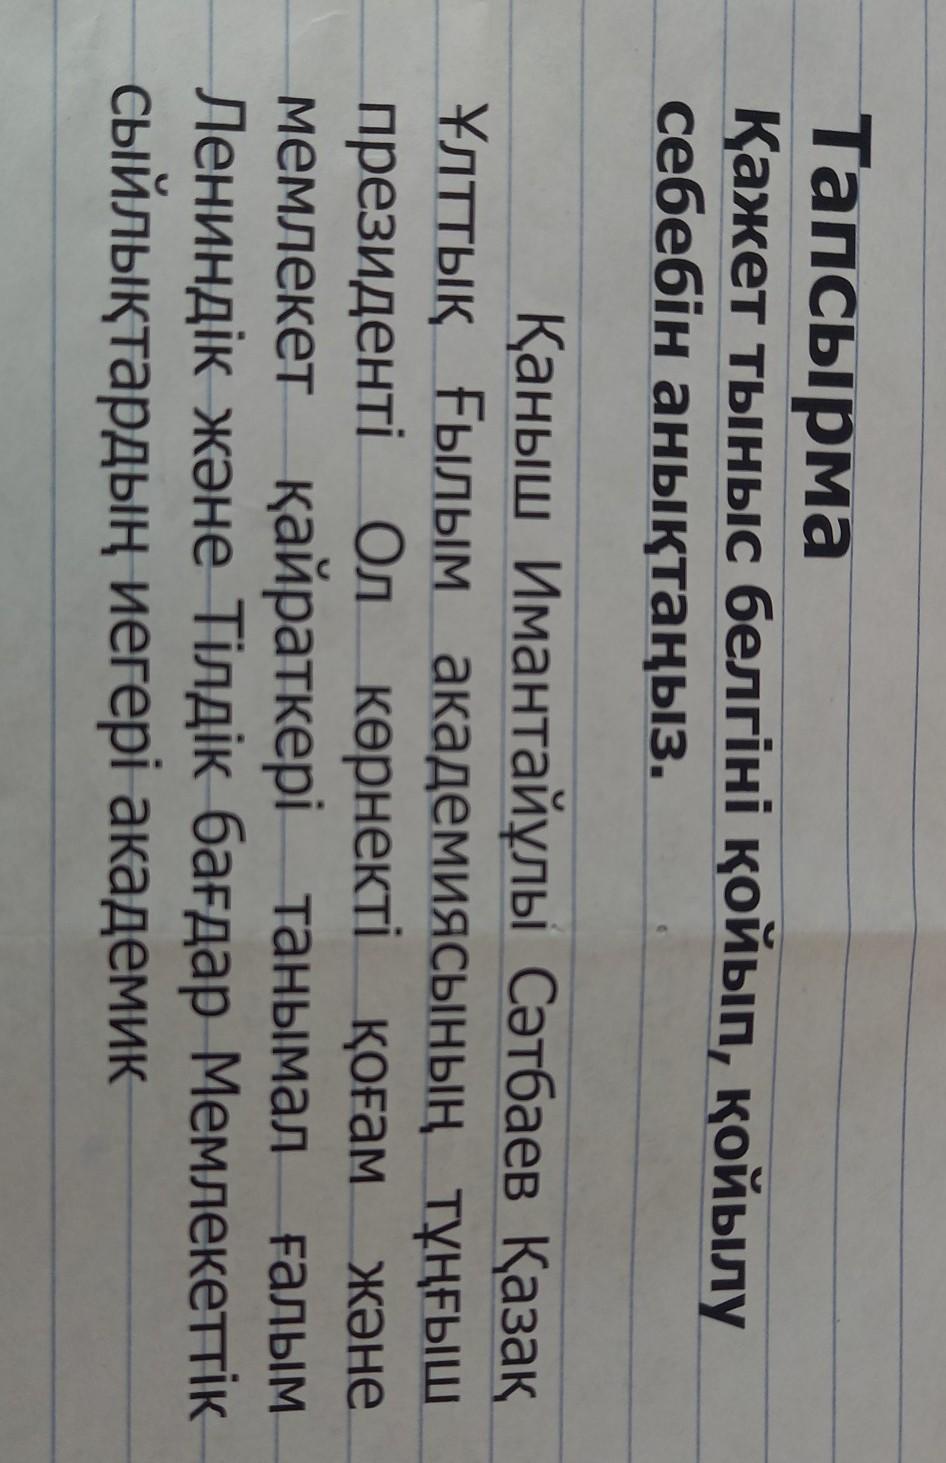 Тапсырма
Қажет тыныс белгіні қойып, қойылу
себебін анықтаңыз.
Қаныш Имантайұлы Сәтбаев Қазақ
Ұлттық Ғылым академиясының тұңғыш
президенті Ол көрнекті қоғам және
мемлекет қайраткері танымал ғалым
Лениндік және Тілдік бағдар Мемлекеттік
сыйлықтардың иегері академик